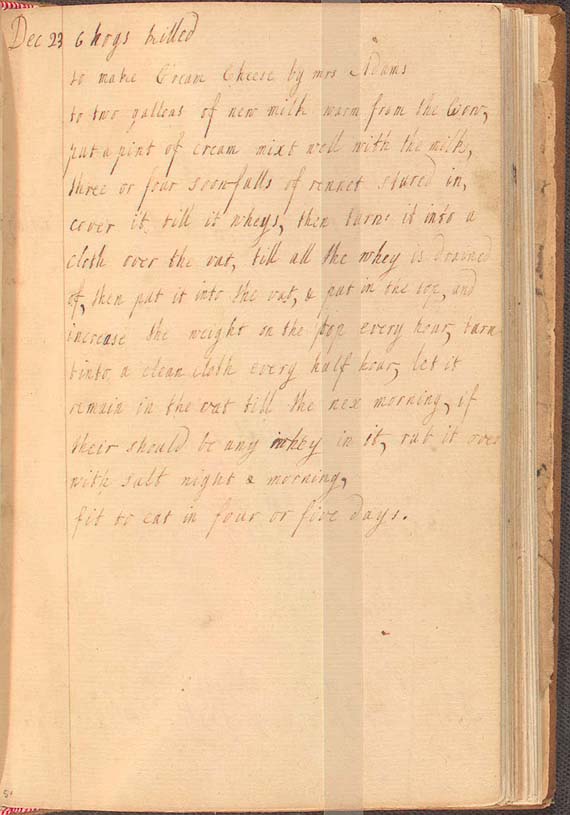 Dec 23 6 hogs killed
to make Cream Cheese by mrs Adams
to two gallons of new milk warm from the Cow,
put a pint of cream mixt well with the milk,
three or four spoonfulls of rennet stured in,
cover it till it wheys, then turne it into a
cloth over the vat, till all the whey is drained
of, then put it into the vat, & put in the top, and
increase the weight on the top every hour, turn
tinto a clean cloth every half hour, let it
remain in the vat till the nex morning, if
their should be any whey in it, rub it over
with salt night & morning,
fit to eat in four or five days.